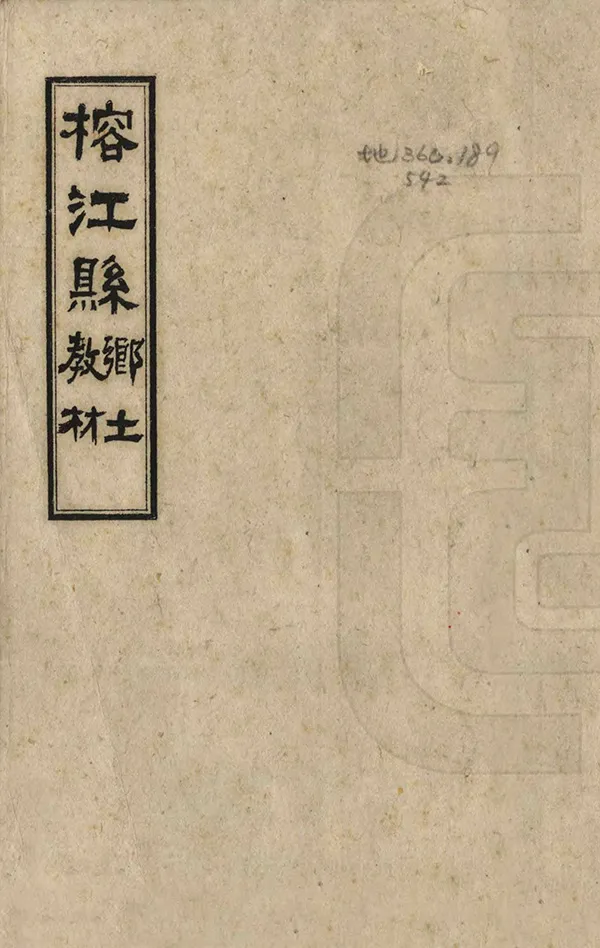 榕江縣
鄉土
教材
地360.189
542